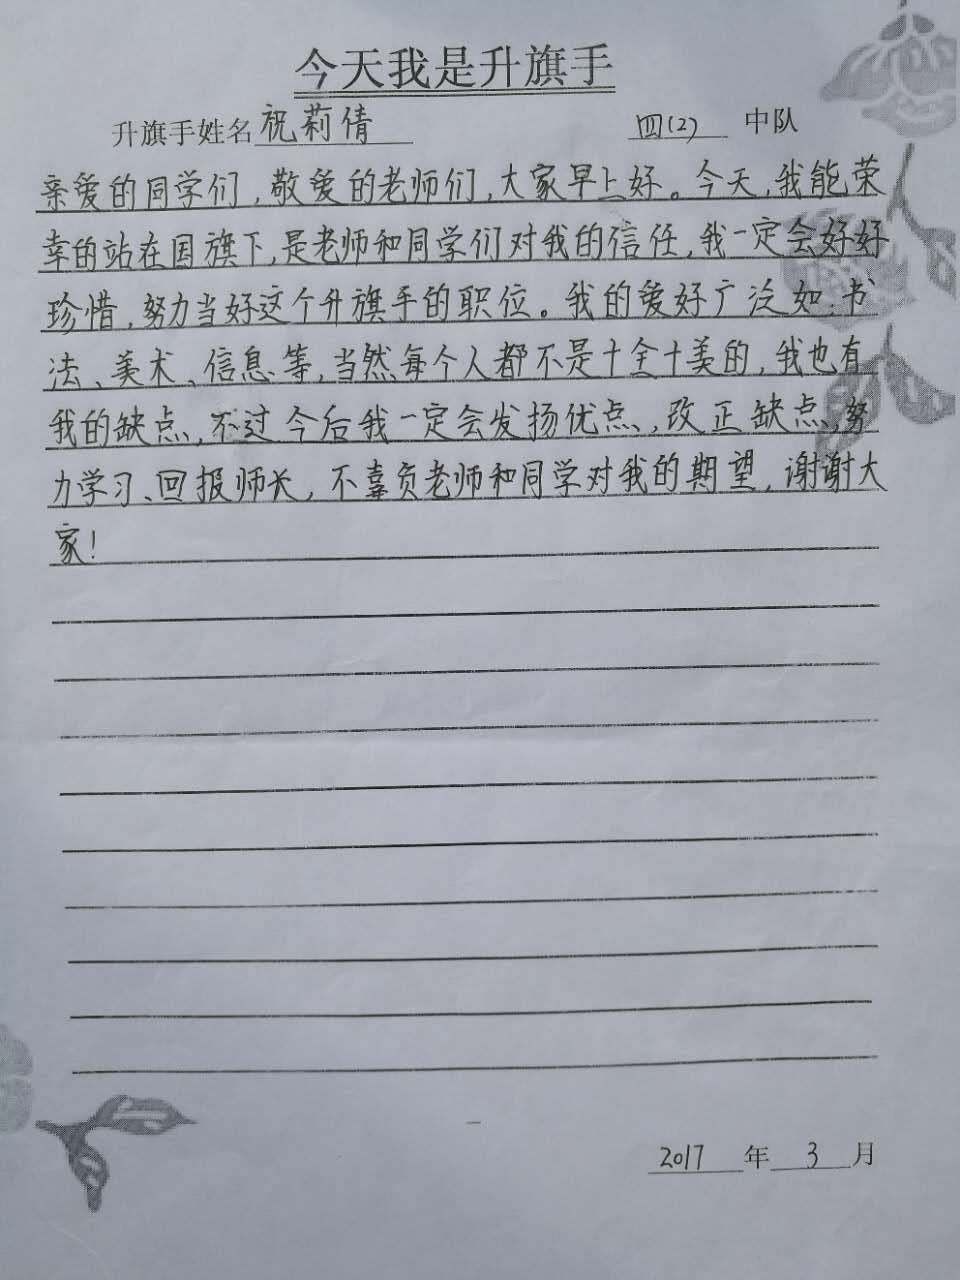 今天我是升旗手
升旗手姓名祝莉倩 四(2) 中队
亲爱的同学们,敬爱的老师们,大家早上好。今天,我能荣
幸的站在国旗下,是老师和同学们对我的信任,我一定会好好
珍惜,努力当好这个升旗手的职位。我的爱好广泛如:书
法、美术、信息等,当然每个人都不是十全十美的,我也有
我的缺点,不过今后我一定会发扬优点,改正缺点,努
力学习、回报师长,不辜负老师和同学对我的期望,谢谢大
家!
2017年3月